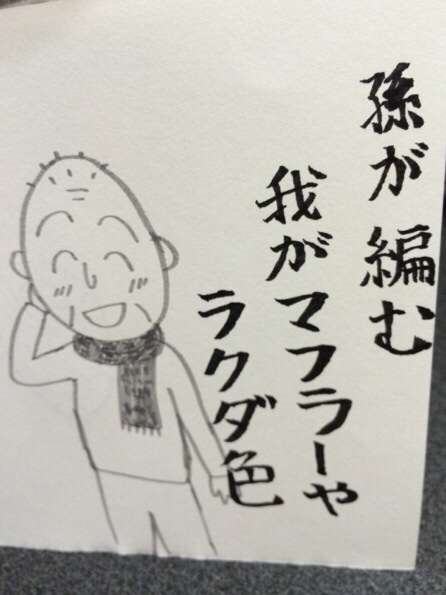 孫が編む
我がマフラーや
ラクダ色